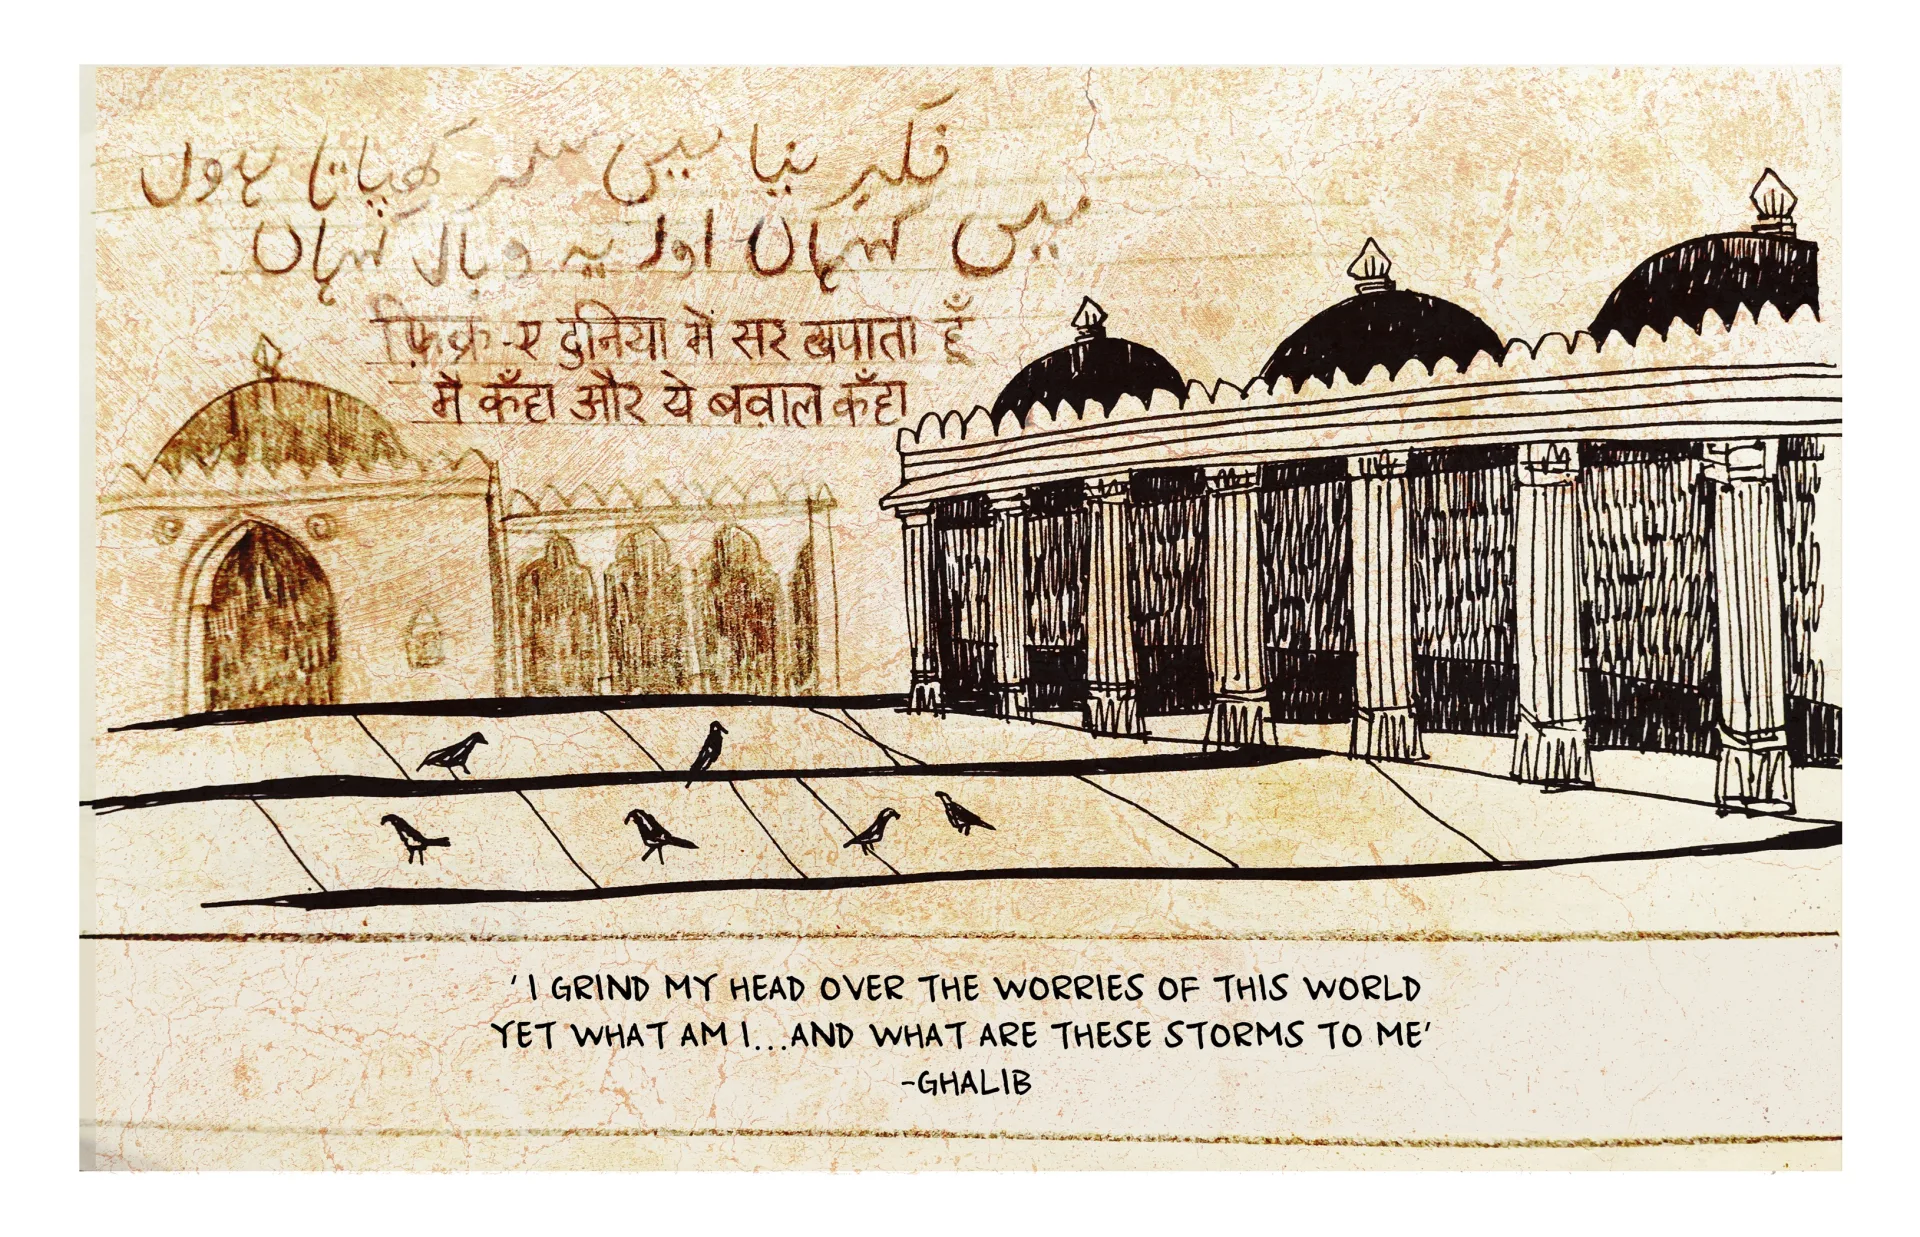 فکر دنیا میں سر کھپاتا ہوں
میں کہاں اور یہ وبال کہاں
फ़िक्र-ए दुनिया में सर खपाता हूँ
मै कँहा और ये बव़ाल कँहा
' I GRIND MY HEAD OVER THE WORRIES OF THIS WORLD
YET WHAT AM I...AND WHAT ARE THESE STORMS TO ME'
-GHALIB